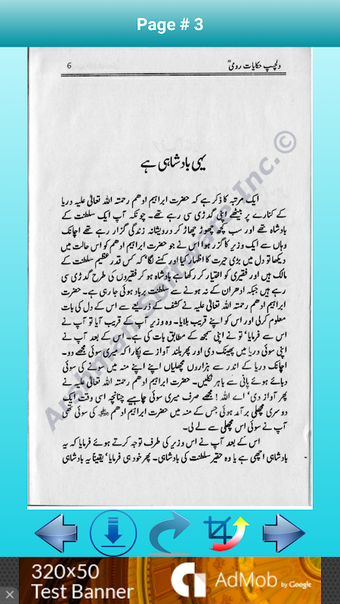 Page # 3
دلچسپ حکایات رومیؒ
6
یہی بادشاہی ہے
ایک مرتبہ کا ذکر ہے کہ حضرت ابراہیم ادھم رحمتہ اللہ تعالیٰ علیہ دریا
کے کنارے پر بیٹھے اپنی گدڑی سی رہے تھے۔ چونکہ آپ ایک سلطنت کے
بادشاہ تھے اور سب کچھ چھوڑ چھاڑ کر درویشانہ زندگی گزار رہے تھے اچانک
وہاں سے ایک وزیر کا گزر ہوا اس نے جو حضرت ابراہیم ادھم کو اس حالت میں
دیکھا تو دل میں بڑی حیرت کا اظہار کیا اور کہنے لگا کہ کس قدر عظیم سلطنت کے
مالک ہیں اور فقیری کو اختیار کر رکھا ہے بادشاہ ہو کر فقیروں کی طرح گدڑی سی
رہے ہیں جبکہ ادھر ان کے نہ ہونے سے سلطنت برباد ہوئی جا رہی ہے۔ حضرت
ابراہیم ادھم رحمتہ اللہ تعالیٰ علیہ نے کشف کے ذریعے سے اس کے دل کی بات
معلوم کر لی اور اس کو اپنے قریب بلایا۔ وہ وزیر آپ کے قریب آیا تو آپ نے
اس سے فرمایا' تو نے اپنی سمجھ کے مطابق بات کی ہے۔ اس کے بعد آپ نے
اپنی سوئی دریا میں پھینک دی اور پھر بلند آواز سے پکارا کہ میری سوئی مجھے دو۔
اچانک دریا کے اندر سے ہزاروں مچھلیاں اپنے اپنے منہ میں سونے کی سوئی
دبائے ہوئے پانی سے باہر نکلیں۔ حضرت ابراہیم ادھم رحمتہ اللہ تعالیٰ علیہ نے
پھر آواز دی' اے اللہ! مجھے صرف میری سوئی چاہیے چنانچہ اسی وقت ایک
دوسری مچھلی برآمد ہوئی جس کے منہ میں حضرت ابراہیم ادھم کی سوئی تھی
آپ نے سوئی اس مچھلی سے لے لی۔
اس کے بعد آپ نے اس وزیر کی طرف توجہ کرتے ہوئے فرمایا کہ یہ
بادشاہی اچھی ہے یا وہ حقیر سلطنت کی بادشاہی۔ پھر خود ہی فرمایا' یقیناً یہ بادشاہی
320x50
Test Banner
AdMob by Google